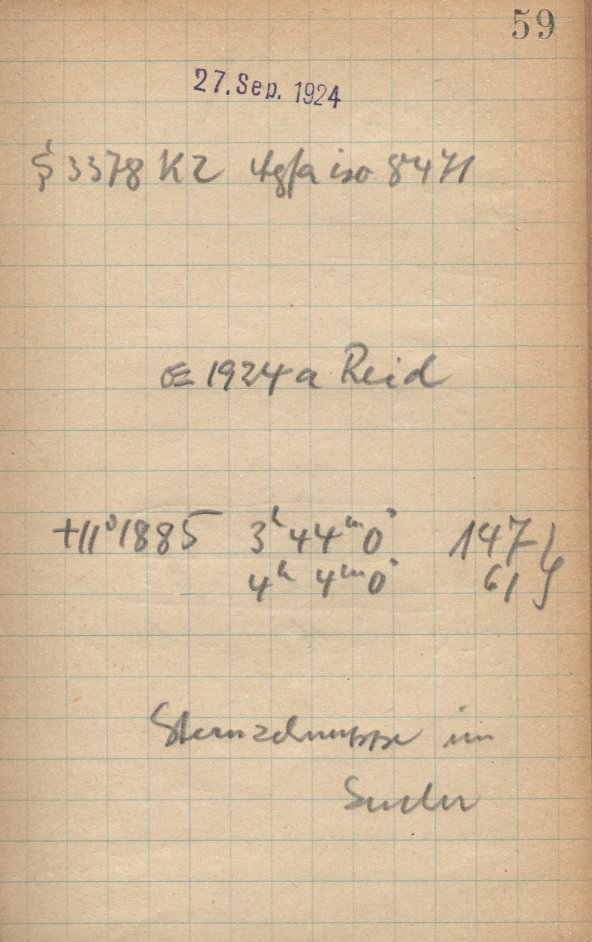 59
27. Sep. 1924
3378 K2 Agfa iso 8471
☄ 1924 a Reid
+11°1885 3ʰ44ᵐ0ˢ 147
4ʰ 4ᵐ0ˢ 61
Sternschnuppe im
Sucher